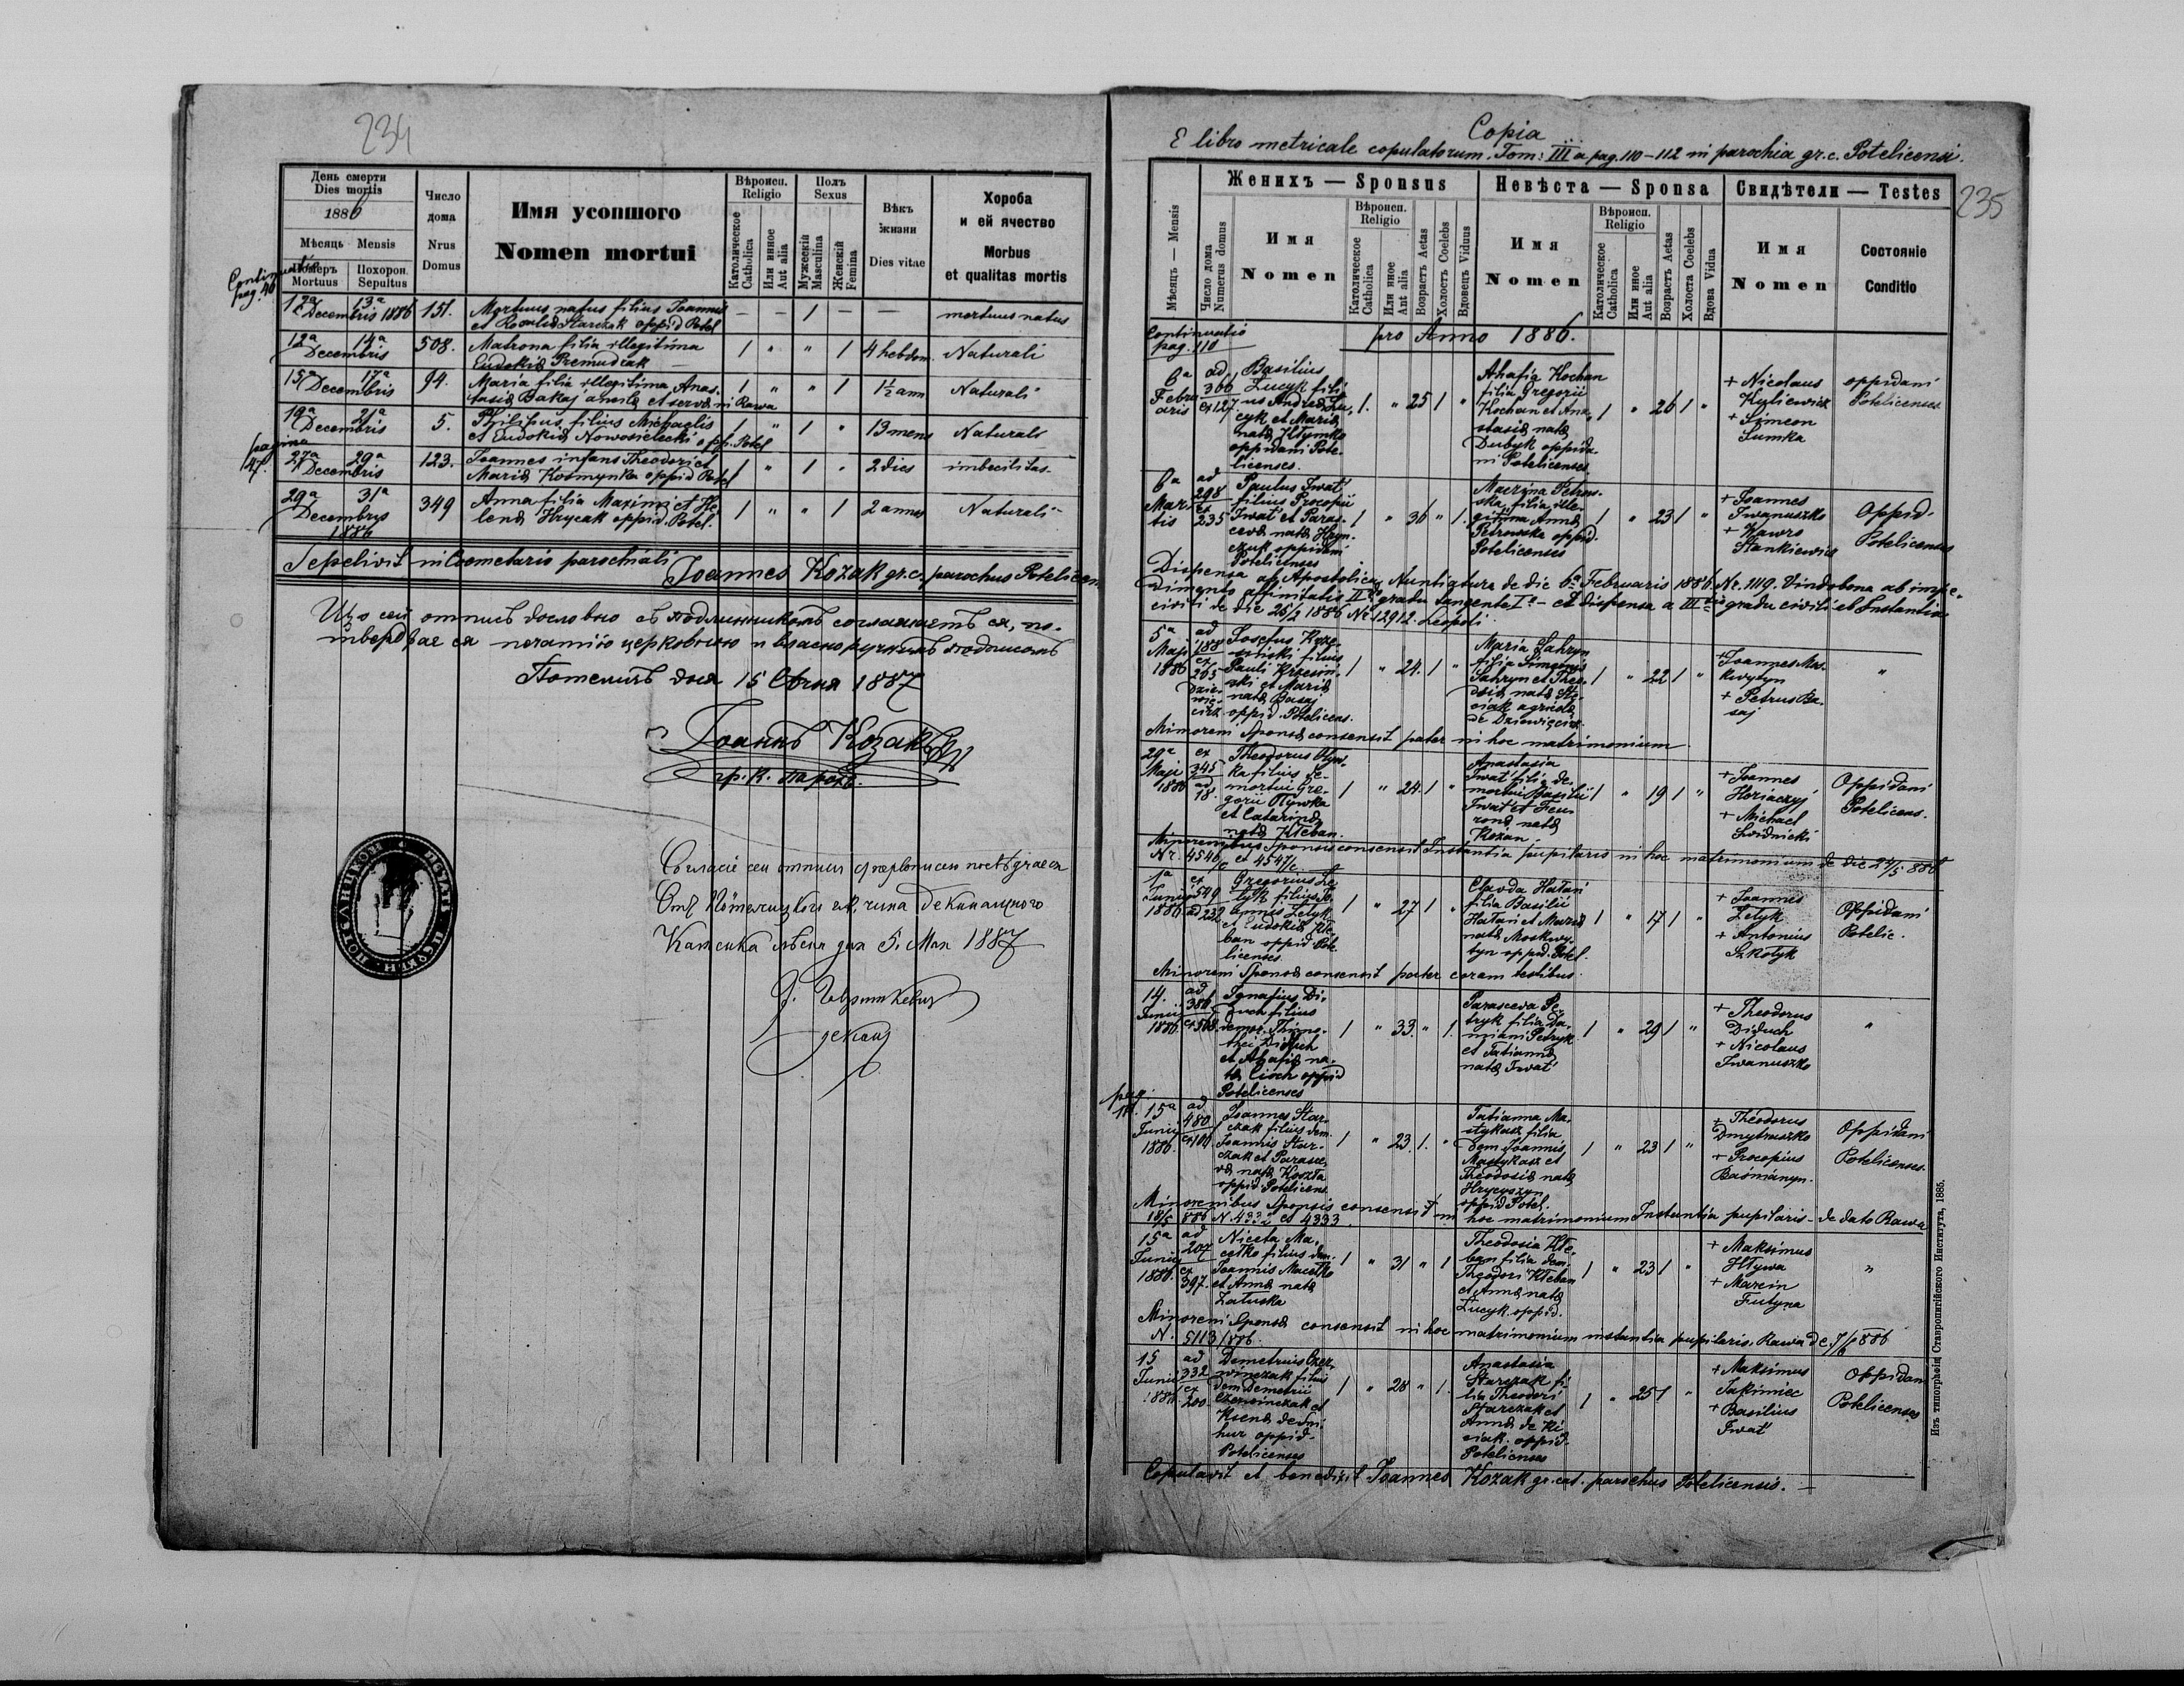 234
День смерти
Dies mortis
1886
Мѣсяць Mensis
Померъ
Mortuus
Похорон.
Sepultus
Число
дома
Nrus
Domus
Имя усопшого
Nomen mortui
Вѣроисп.
Religio
Католическое
Catholica
Или инное
Aut alia
Полъ
Sexus
Мужескій
Masculina
Женскій
Femina
Вѣкъ
жизни
Dies vitae
Хороба
и ей ячество
Morbus
et qualitas mortis
Continuatio
pag. 46
12ª 13ª
Decembris 1886 151. Mortuus natus filius Joannis — — 1 — — mortuus natus
et Starczak oppid Potel
12ª 14ª
Decembris 508. Matrona filia illegitima 1 " " 1 4 hebdom. Naturali
Eudokiæ Premudrak
15ª 17ª
Decembris 94. Maria filia illegitima Anas- 1 " " 1 1½ ann Naturali
tasiæ Bakaj ancilla et serva in Rawa
19ª 21ª
Decembris 5. Philipus filius Michaelis 1 " 1 " 13 mens Naturali
et Eudokiæ Nowosielecki opp. Potel
pagina
47.
27ª 29ª
Decembris 123. Joannes infans Theodori et 1 " 1 " 2 dies imbecilitas
Mariæ Kosmynka oppid Potel
29ª 31ª
Decembrys 349 Anna filia Maximi et He- 1 " " 1 2 annos Naturali
1886 lenæ Hrycak oppid. Potel.
Sepelivit in Coemetario parochiali
Joannes Kozak gr. c. parochus Potelicen
Що сей отписъ дословно съ подлинникомъ соглашаетъ ся, по-
твердает ся печатію церковною и власноручнымъ подписомъ
Потеличъ дня 15 1887
Іоаннъ Козакъ
гр. к. парохъ.
Согласіе сеи отписи
Отъ
дня 5. Мая 1887
деканъ
235
Copia
E libro metricale copulatorum. Tom: III a pag. 110–112 in parochia gr. c. Potelicensi.
Женихъ — Sponsus
Невѣста — Sponsa
Свидѣтели — Testes
Мѣсяць — Mensis
Число дома
Numerus domus
Имя
Nomen
Вѣроисп.
Religio
Католическое
Catholica
Или инное
Aut alia
Возрастъ Aetas
Холостъ Coelebs
Вдовецъ Viduus
Имя
Nomen
Вѣроисп.
Religio
Католическое
Catholica
Или инное
Aut alia
Возрастъ Aetas
Холоста Coelebs
Вдова Vidua
Имя
Nomen
Состояніе
Conditio
Continuatio
pag. 110
pro Anno 1886.
6ª
Febru
aris
ad
366
ex 127
Basilius
Lucyk fili-
us Andreæ Lu-
cyk et Mariæ
natæ Kłymko
oppidani Pote-
licenses.
1. " 25 1 "
Ahafia Kochan
filia Gregorii
Kochan et Ana-
stasiæ natæ
Dubyk oppida-
ni Potelicenses
1 " 26 1 "
+ Nicolaus
Kyliewicz
+ Simeon
Sumka
oppidani
Potelicenses
6ª
Mar-
tis
ad
298
ex
235
Paulus Iwat'
filius Procopii
Iwat' et Paras-
cevæ natæ Hryn-
czuk oppidani
Potelicenses
1 " 36 " 1.
Macryna Petrow-
ska, filia ille-
gitima Annæ
Petrowska oppid.
Potelicenses
1 " 23 1 "
+ Joannes
Iwanuszko
+ Ławro
Stankiewicz
Oppid-
Potelicenses
Dispensa ab Apostolica Nuntiatura de die 6ª Februaris 1886. Nr. 1119. Vindobona ab impe-
dimento affinitatis IIdo gradu tangente Im – et dispensa a IIIo gradu civili ab Instantia
civili de die 26/2 1886 Nr 12912. Leopoli
5ª
Maji
1886
ad
188
ex
205
Dzie-
wię-
cierz
Josefus Krze-
sinski filius
Pauli Krzesin-
ski et Mariæ
natæ Basaj
oppid. Potelicens.
1 " 24. 1 "
Maria Sahryn
filia Simeonis
Sahryn et Theo-
dosiæ natæ Ste-
ciak agricolæ
de Dziewięcierz.
1 " 22 1 "
+ Joannes Mos-
kwytyn
+ Petrus Ba-
saj
"
Minoreni Sponsæ consensit pater in hoc matrimonium
29ª
Maji
1886
ex
345
ad
18.
Theodorus Oływ-
ka filius de-
mortui Gre-
gorii Oływka
et Catarinæ
natæ Kłeban.
1 " 24. 1 "
Anastasia
Iwat' filia de-
mortui Basilii
Iwat' et Feu-
ronæ natæ
Kozan
1 " 19 1 "
+ Joannes
Horiaczyj
+ Michael
Świdnicki
Oppidani
Potelicens.
Minorenibus Sponsis consensit Instantia pupilaris in hoc matrimonium de die 27/5 886
Nr. 4546/c et 4547/c
1ª
Junii
1886
ex
549
ad 232
Gregorius Ze-
łyk filius Jo-
annis Zełyk
et Eudokiæ Kłe-
ban oppid Pote-
licenses.
1 " 27 1 "
Clavda Hałan
filia Basilii
Hałan et Mariæ
natæ Moskwy-
tyn oppid. Potel.
1 " 17 1 "
+ Joannes
Zełyk
+ Antonius
Szkołyk
Oppidani
Potelic.
Minoreni Sponsæ consensit pater coram testibus.
14.
Junii
1886
ad
386
ex 508
Ignatius Di-
duch filius
demor. Thimo-
thei Diduch
et Ahafiæ na-
tæ Cioch oppid
Potelicenses
1 " 33. " 1.
Parasceva Pe-
tryk filia Da-
miani Petryk
et Tatiannæ
natæ Iwat'
1 " 29 1 "
+ Theodorus
Diduch
+ Nicolaus
Iwanuszko
"
pag.
111.
15ª
Junii
1886.
ad
480
ex 106
Joannes Star-
czak filius dem.
Joannis Star-
czak et Parasce-
væ natæ Koszła
oppid. Potelicens.
1 " 23. 1. "
Tatianna Ma-
stykasz filia
dem Joannis
Mastykasz et
Theodosiæ natæ
Hrycyszyn
oppid Potel.
1 " 23 1 "
+ Theodorus
Dmytruszko
+ Procopius
Baśmianyn.
Oppidani
Potelicenses.
Minorenibus Sponsis consensit in hoc matrimonium Instantia pupilaris – de dato Rawa
18/5 886 N. 4332 et 4333.
15ª
Junii
1886.
ad
207
ex
397.
Niceta Ma-
cełko filius dem.
Joannis Macełko
et Annæ natæ
Załuska
1 " 31 " 1
Theodosia Kłe-
ban filia dem.
Theodori Kłeban
et Annæ natæ
Łucyk. oppid.
1 " 23 1 "
+ Maksimus
Hływa
+ Marcin
Futyna
"
Minoreni Sponsæ consensit in hoc matrimonium instantia pupilaris. Rawa de 7/6 886
N. 5113/886.
15
Junii
1886.
ad
332
ex
200.
Demetrius Czer-
winczak filius
dem Demetrii
Czerwinczak et
Ksenæ de Dni-
hur oppid-
Potelicenses
1 " 28 " 1.
Anastasia
Starczak fi-
lia Theodori
Starczak et
Annæ de Ki-
ciak. oppid-
Potelicenses
1 " 25 1 "
+ Maksimus
Jakimiec
+ Basilius
Iwat'
Oppidani
Potelicenses
Copulavit et benedixit Joannes Kozak gr. cat. parochus Potelicensis. —
Изъ типографіи Ставропигійского Института, 1885.